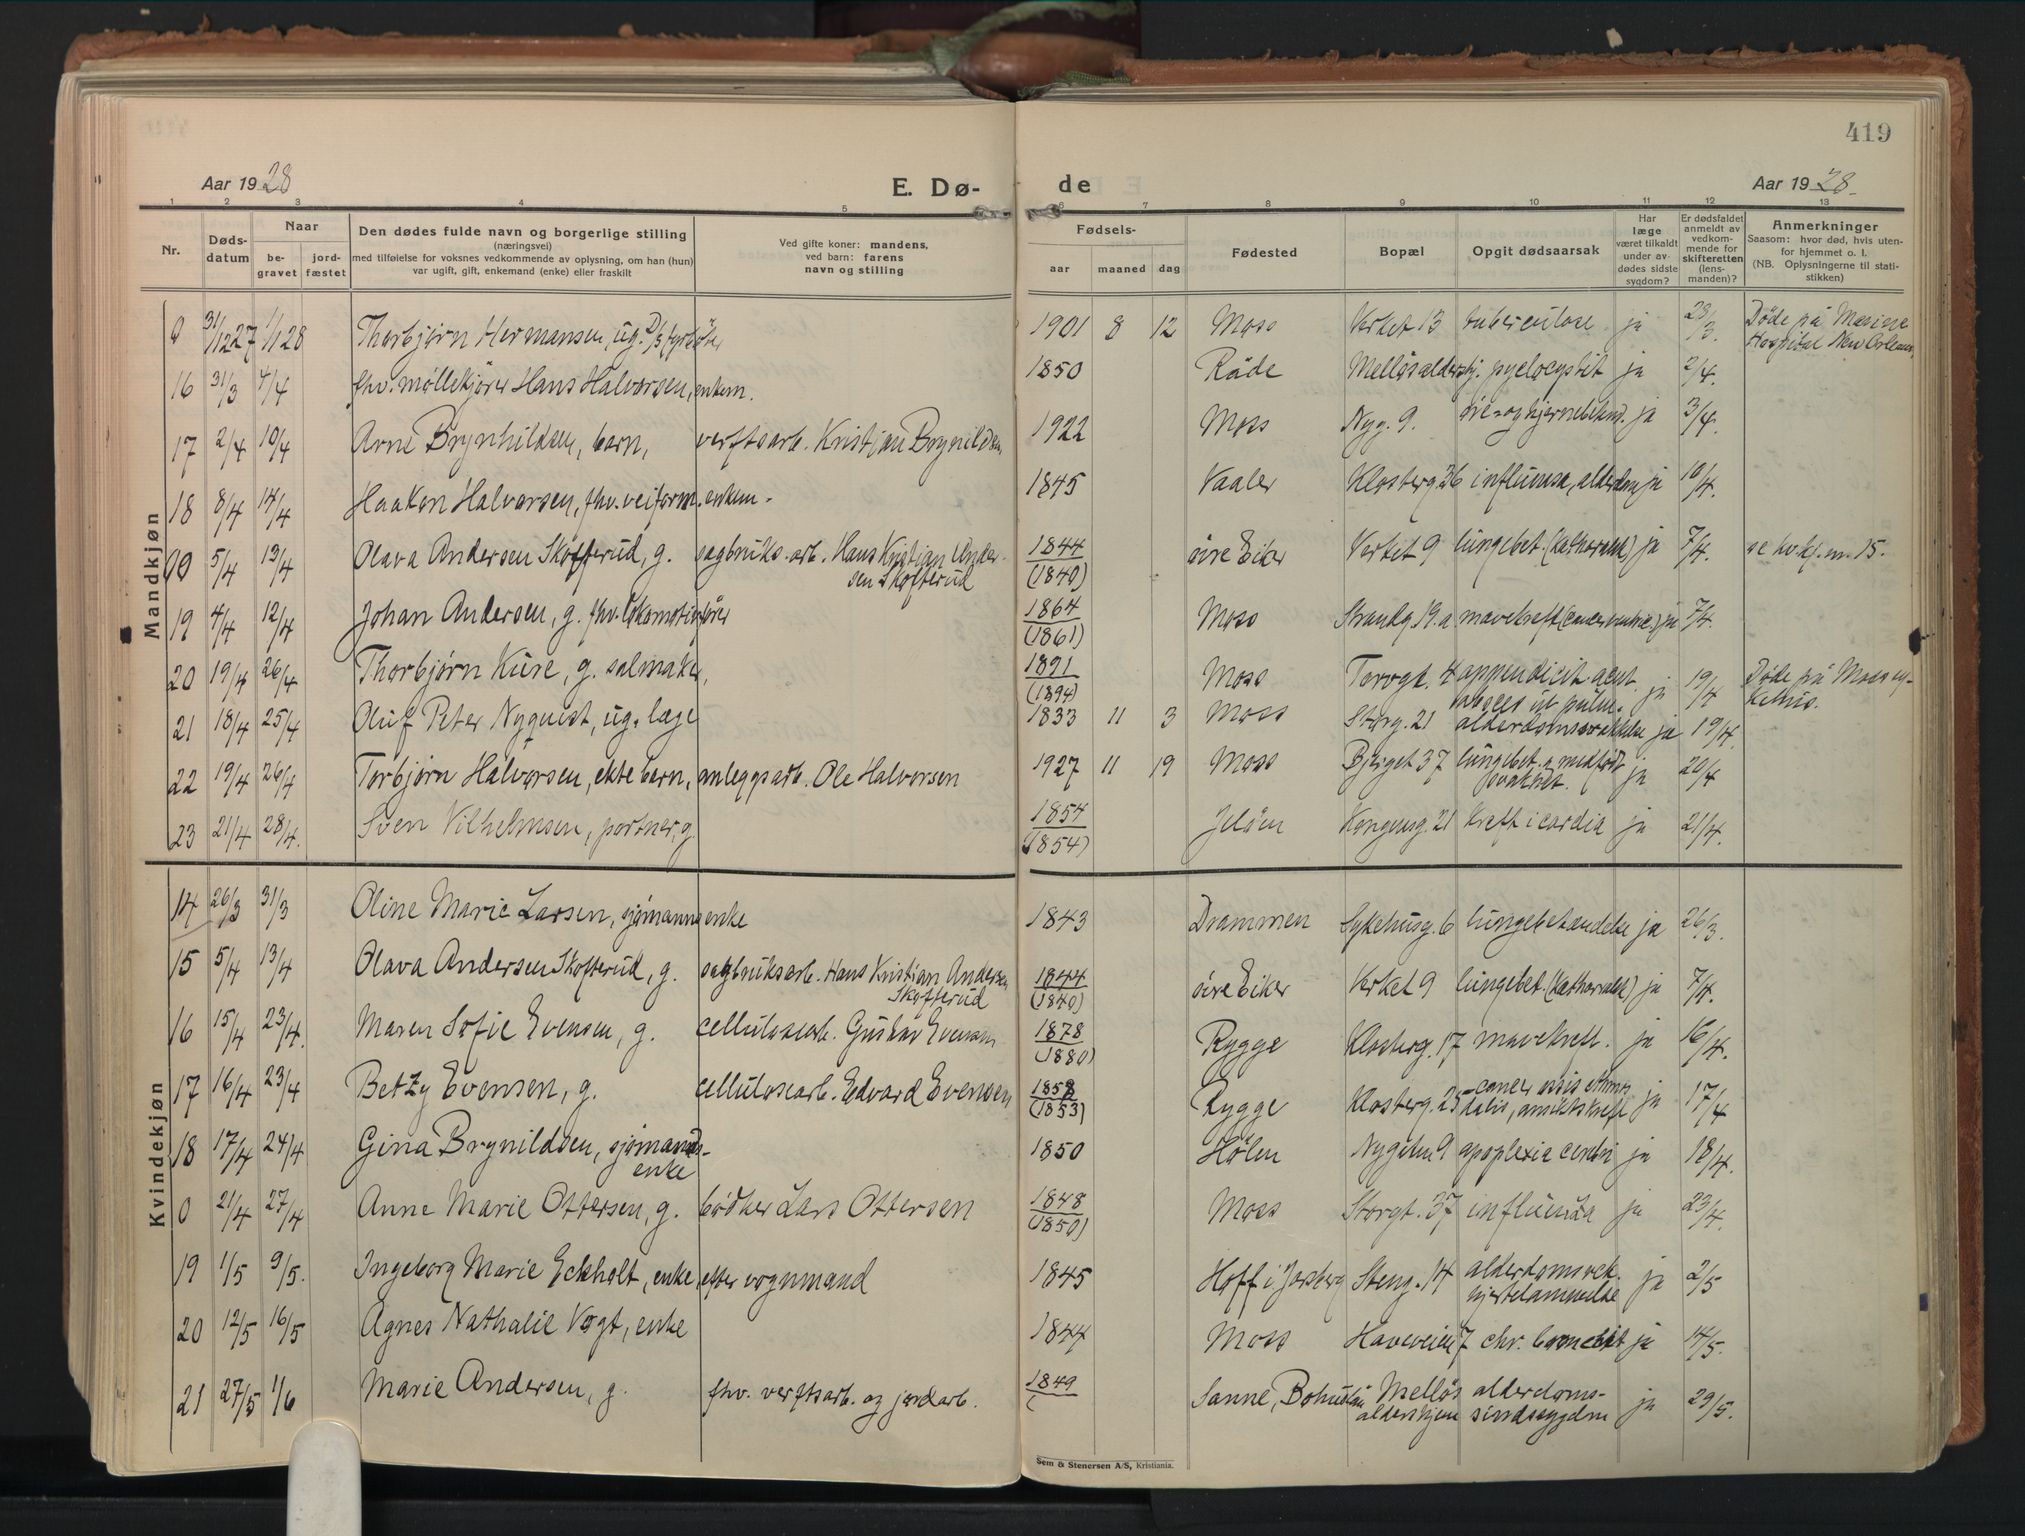 419
Aar 1928
E. Dø-
de
Aar 1928
1 2 3 4 5 6 7 8 9 10 11 12 13
Nr.
Døds-
datum
Naar
be-
gravet
jord-
fæstet
Den dødes fulde navn og borgerlige stilling
(næringsvei)
med tilføielse for voksnes vedkommende av oplysning, om han (hun)
var ugift, gift, enkemand (enke) eller fraskilt
Ved gifte koner: mandens,
ved barn: farens
navn og stilling
Fødsels-
aar maaned dag
Fødested
Bopæl
Opgit dødsaarsak
Har
læge
været tilkaldt
under av-
dødes sidste
sygdom?
Er dødsfaldet
anmeldt av
vedkom-
mende for
skifteretten
(lens-
manden)?
Anmerkninger
Saasom: hvor død, hvis uten-
for hjemmet o. l.
(NB. Oplysningerne til stati-
stikken)
Mandkjøn
0 31/12 27 1/1 28 Thorbjørn Hermansen, ug. D/S fyrbøter 1901 8 12 Moss Verket 13 tuberculose ja 23/3. Døde på Marine
Hospital New Orleans,
16 31/3 4/4 fhv. møllekjører Hans Halvorsen, enkem. 1850 Råde Melløs aldershj. pyelocystit ja 2/4.
17 2/4 10/4 Arne Brynhildsen, barn, verftsarb. Kristian Brynildsen 1922 Moss Nyg. 9. øre- og hjernebetend. ja 3/4.
18 8/4 14/4 Haakon Halvorsen, fhv. veiform. enkem. 1845 Vaaler Klosterg. 36 influensa, alderdom ja 10/4.
00 5/4 13/4 Olava Andersen Skofterud, g. sagbruks-arb. Hans Kristian Ander-
sen Skofterud 1844
(1840) øvre Eiker Verket 9 lungebet. (katharalsk) ja 7/4. se kvkj. nr. 15.
19 4/4 12/4 Johan Andersen, g. fhv. lokomotivfører 1864
(1861) Moss Strandg. 19.a mavekreft (cancer ventric.) ja 7/4.
20 19/4 26/4 Thorbjørn Kure, g. salmaker, 1891
(1894) Moss Torvgt. 4 appendicit acut.
absces ja 19/4 Døde på Moss sy-
kehus.
21 18/4 25/4 Oluf Peter Nyquist, ug. læge 1833 11 3 Moss Storg. 21 alderdomssvakkelse ja 19/4.
22 19/4 26/4 Torbjørn Halvorsen, ekte barn, anleggsarb. Ole Halvorsen 1927 11 19 Moss 37 lungebet. medfødt
svakhet. ja 20/4
23 21/4 28/4. Sven Vilhelmsen, portner, g. 1854
(1854) Jeløen Kongensg. 21 kreft i cardia ja 21/4.
Kvindekjøn
14 26/3 31/3 Oline Marie Larsen, sjømanns enke 1843 Drammen Sykehusg. 6 lungebetændelse ja 26/3.
15 5/4 13/4 Olava Andersen Skofterud, g. sagbruksarb. Hans Kristian Andersen
Skofterud 1844
(1840) øvre Eiker Verket 9 lungebet. (katharalsk) ja 7/4.
16 15/4 23/4. Maren Sofie Evensen, g. cellulosearb. Gustav Evensen 1878
(1880) Rygge Klosterg. 17 mavekreft. ja 16/4.
17 16/4 23/4 Betzy Evensen, g. cellulosearb. Edvard Evensen 1858
(1853) Rygge Klosterg. 25 cancer ossis ethmoi-
dalis, ansiktskreft ja 17/4
18 17/4 24/4 Gina Brynildsen, sjømands-
enke 1850 Hølen Nygaten 9 apoplexia cerebri ja 18/4.
0 21/4 27/4 Anne Marie Ottersen, g. bødker Lars Ottersen 1848
(1850) Moss Storgt. 37 influenza ja 23/4.
19 1/5 9/5. Ingeborg Marie Eckholt, enke efter vognmand 1845 Hoff i Jarlsberg Steng. 14 alderdomsvek.
hjertelammelse ja 2/5
20 12/5 16/5 Agnes Nathalie Vogt, enke 1844 Moss Haveveien 7 chr. bronchit ja 14/5.
21 27/5 1/6 Marie Andersen, g. fhv. verftsarb. og jordarb. 1849
( Sanne, Bohuslän Melløs
aldershjem alderdoms-
sindssygdm ja 29/5.
Sem & Stenersen A/S, Kristiania.